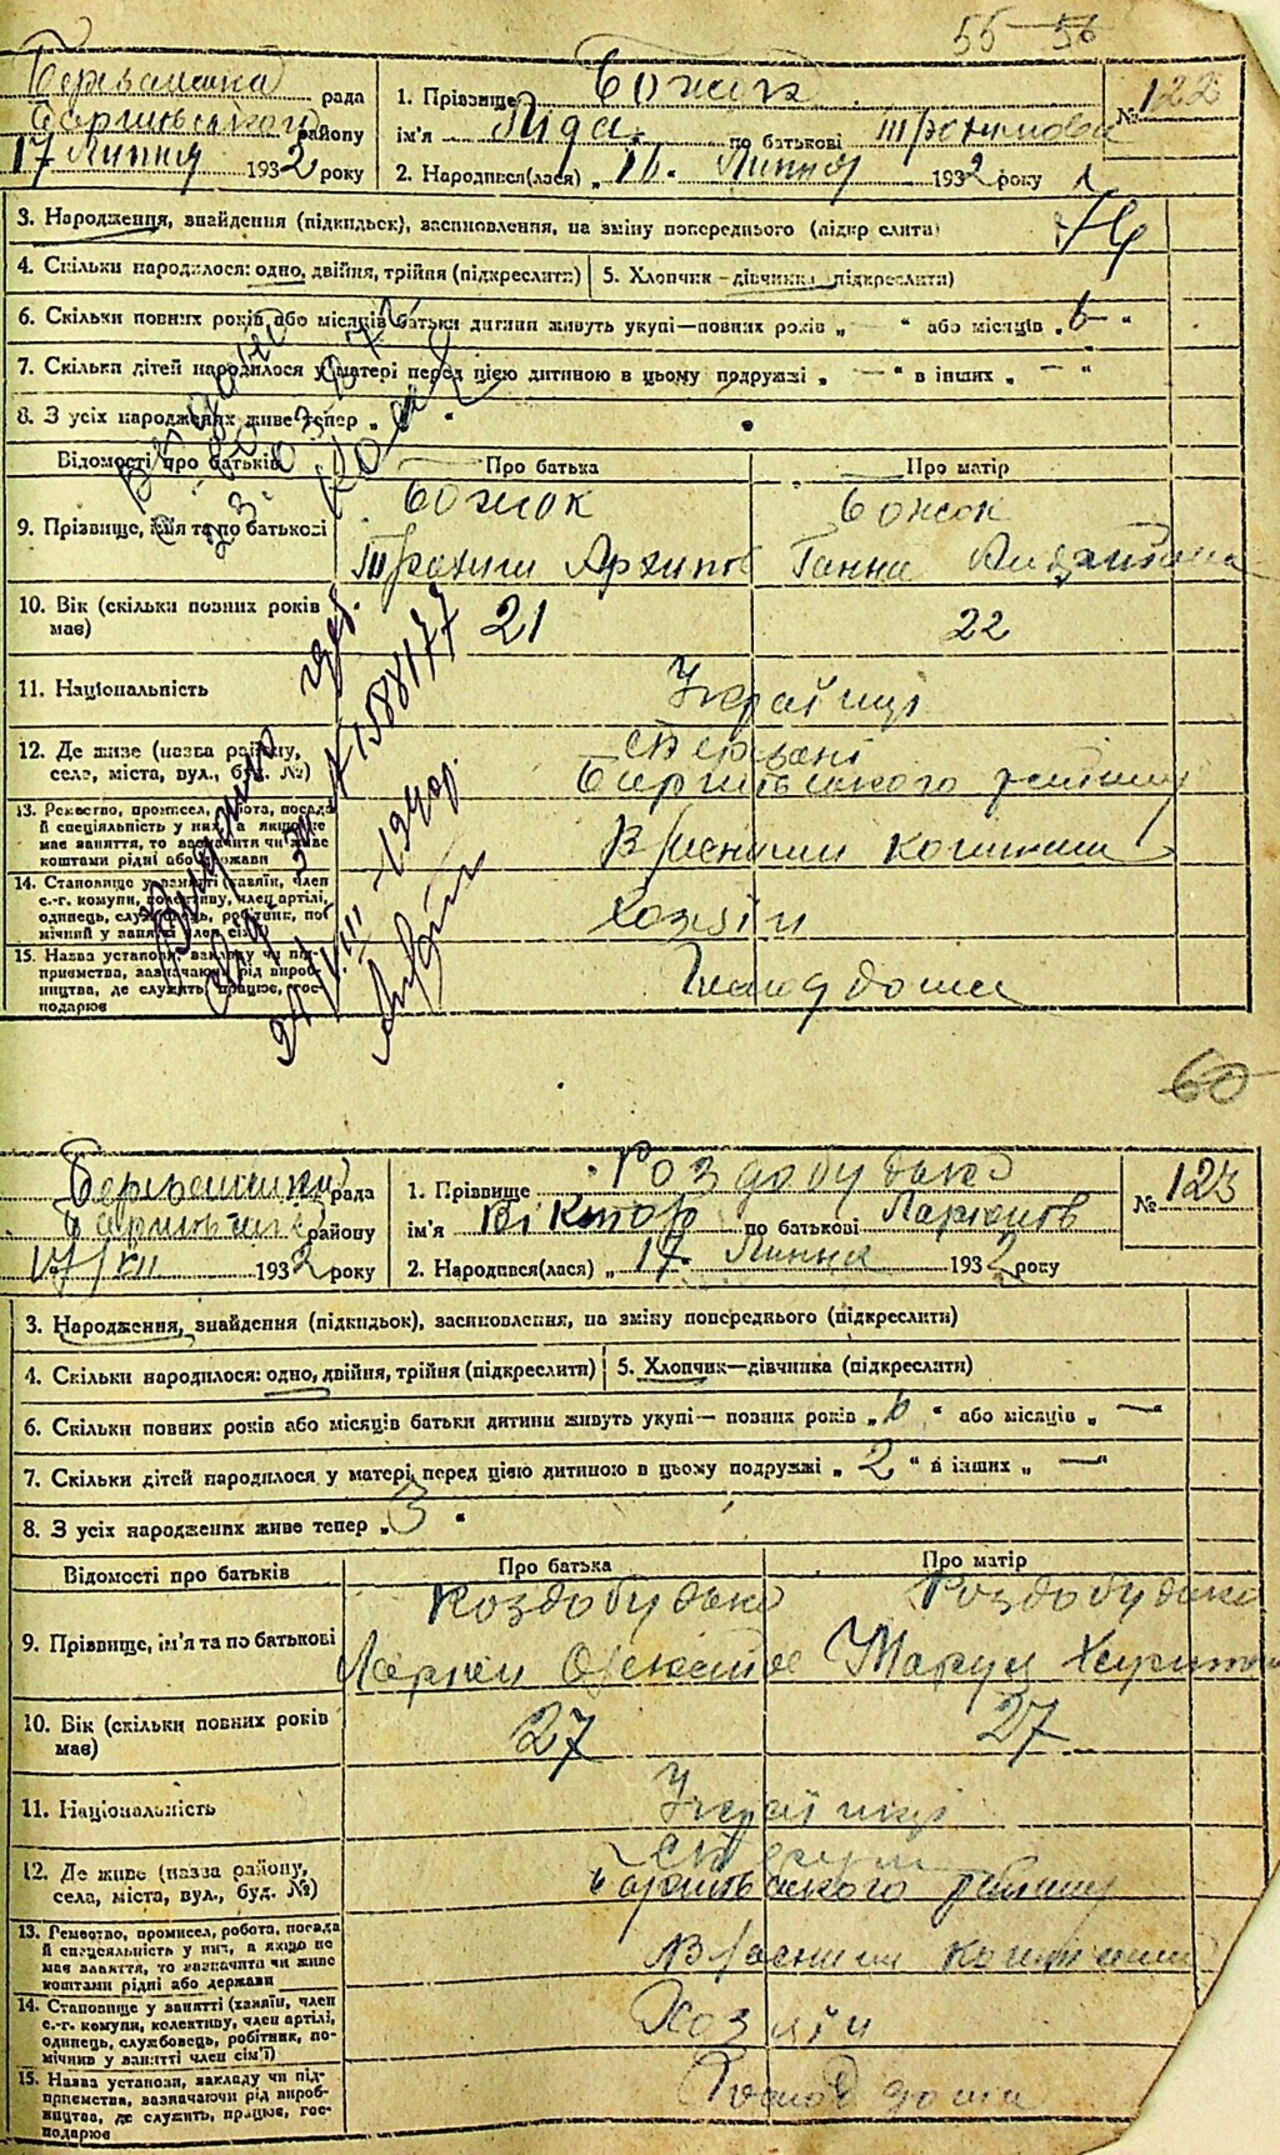 55-56
рада
району
17 Липня 1932 року
1. Прізвище Божок
ім'я Ліда по батькові Трохимовна
2. Народився(лася) „16. Липня 1932 року
№ 122
3. Народження, знайдення (підкидьок), засиновлення, на зміну попереднього (підкр слити)
4. Скільки народилося: одно, двійня, трійня (підкреслити)
5. Хлопчик – дівчинка підкреслити)
6. Скільки повних років або місяців батьки дитини живуть укупі—повних років „ — “ або місяців „6 “
7. Скільки дітей народилося у матері перед цією дитиною в цьому подружжі „ — “ в інших „ — “
8. З усіх народжених живе тепер „ “
Відомості про батьків
Про батька
Про матір
9. Прізвище, ім'я та по батькові
Божок
Божок
Трохим Архипов
Ганна
10. Вік (скільки повних років має)
21
22
11. Національність
Українці
12. Де живе (назва району, села, міста, вул., буд. №)
району
13. Ремество, промисел, робота, посада
й спеціяльність у них, а якщо не
має заняття, то зазначити чи живе
коштами рідні або держави
Власними коштами
14. Становище у занятті (хазяїн, член
с.-г. комуни, колективу, член артілі,
одинець, службовець, робітник, по
мічний у занятті член сім'ї)
Хозяїн
15. Назва установи, закладу чи під-
приємства, зазначаючи рід вироб-
ництва, де служить, працює, гос-
подарює
дома
Видано
за № 1588177
1940р.
60
рада
району
17/VII 1932 року
1. Прізвище Роздобудько
ім'я Віктор по батькові Ларіонов
2. Народився(лася) „ 17. Липня 1932 року
№ 123
3. Народження, знайдення (підкидьок), засиновлення, на зміну попереднього (підкреслити)
4. Скільки народилося: одно, двійня, трійня (підкреслити)
5. Хлопчик—дівчинка (підкреслити)
6. Скільки повних років або місяців батьки дитини живуть укупі— повних років „6 “ або місяців „ — “
7. Скільки дітей народилося у матері перед цією дитиною в цьому подружжі „ 2 “ в інших „ — “
8. З усіх народжених живе тепер „ 3 “
Відомості про батьків
Про батька
Про матір
9. Прізвище, ім'я та по батькові
Роздобудько
Роздобудько
10. Вік (скільки повних років має)
27
27
11. Національність
Українці
12. Де живе (назва району,
села, міста, вул., буд. №)
району
13. Ремество, промисел, робота, посада
й спеціяльність у них, а якщо не
має заняття, то зазначити чи живе
коштами рідні або держави
Власними коштами
14. Становище у занятті (хазяїн, член
с.-г. комуни, колективу, член артілі,
одинець, службовець, робітник, по-
мічний у занятті член сім'ї)
Хозяїн
15. Назва установи, закладу чи під-
приємства, зазначаючи рід вироб-
ництва, де служить, працює, гос-
подарює
дома